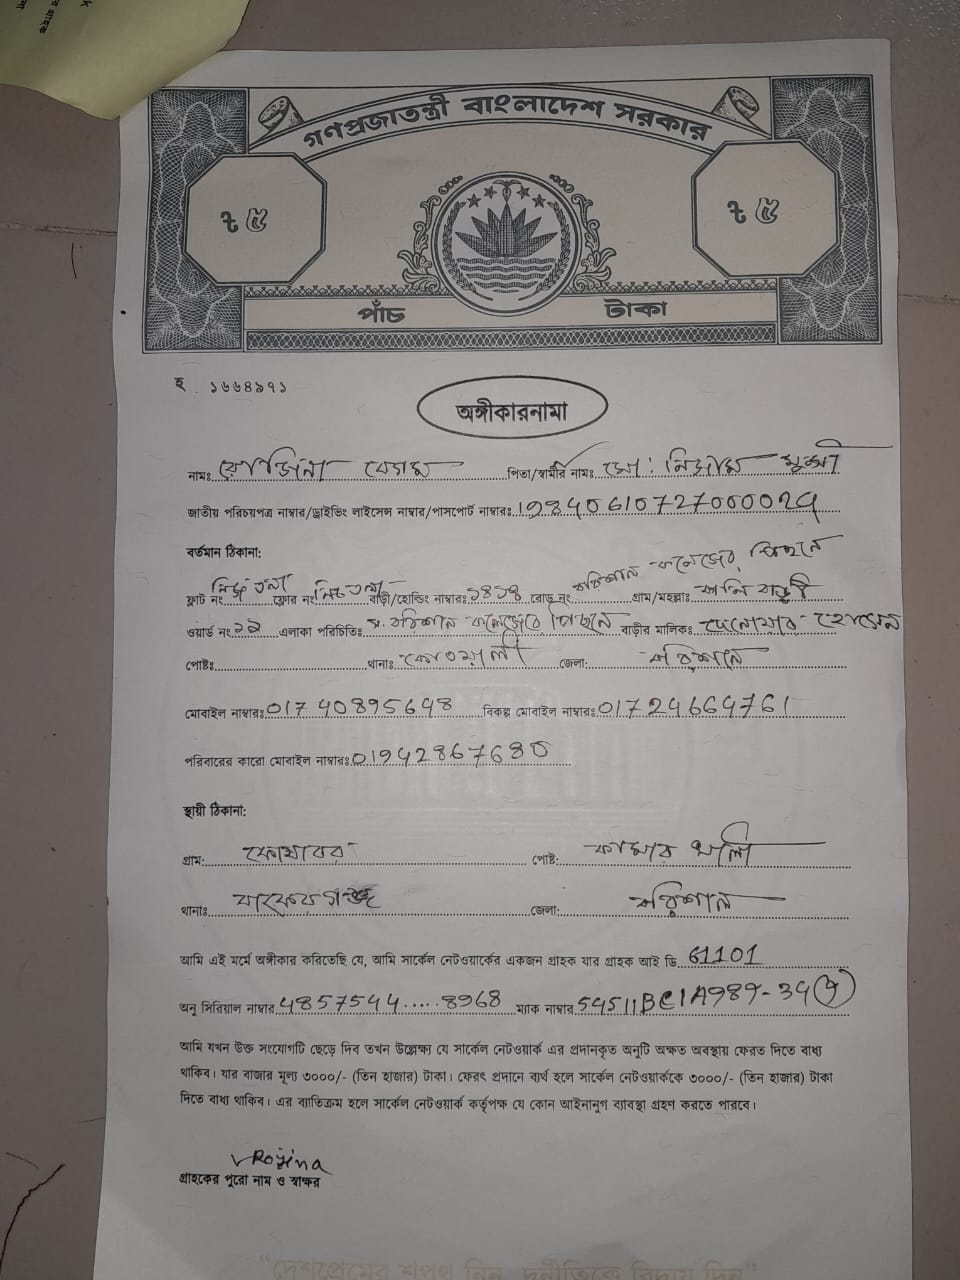 গণপ্রজাতন্ত্রী বাংলাদেশ সরকার
৳ ৫ ৳ ৫
পাঁচ টাকা
হ . ১৬৬৪৯৭১
অঙ্গীকারনামা
নামঃ রোজিনা বেগম পিতা/স্বামীর নামঃ মো: নিজাম মুন্সী
জাতীয় পরিচয়পত্র নাম্বার/ড্রাইভিং লাইসেন্স নাম্বার/পাসপোর্ট নাম্বারঃ
বর্তমান ঠিকানা:
ফ্লাট নং নিচ তলা ফ্লোর নং নিচ তলা বাড়ী/হোল্ডিং নাম্বারঃ রোড নং বরিশাল কলেজের পিছনে গ্রাম/মহল্লাঃ
ওয়ার্ড নং এলাকা পরিচিতিঃ স. বরিশাল কলেজের পিছনে বাড়ীর মালিকঃ দেলোয়ার হোসেন
পোষ্টঃ থানাঃ কোতয়ালী জেলা: বরিশাল
মোবাইল নাম্বারঃ 01740895648 বিকল্প মোবাইল নাম্বারঃ 01724664761
পরিবারের কারো মোবাইল নাম্বারঃ 01942867680
স্থায়ী ঠিকানা:
গ্রাম: পোষ্ট:
থানাঃ বাকেরগঞ্জ জেলা: বরিশাল
আমি এই মর্মে অঙ্গীকার করিতেছি যে, আমি সার্কেল নেটওয়ার্কের একজন গ্রাহক যার গ্রাহক আই ডি 61101
অনু সিরিয়াল নাম্বার 4857544....8968 ম্যাক নাম্বার
আমি যখন উক্ত সংযোগটি ছেড়ে দিব তখন উল্লেক্ষ্য যে সার্কেল নেটওয়ার্ক এর প্রদানকৃত অনুটি অক্ষত অবস্থায় ফেরত দিতে বাধ্য
থাকিব। যার বাজার মূল্য ৩০০০/- (তিন হাজার) টাকা। ফেরৎ প্রদানে ব্যর্থ হলে সার্কেল নেটওয়ার্ককে ৩০০০/- (তিন হাজার) টাকা
দিতে বাধ্য থাকিব। এর ব্যাতিক্রম হলে সার্কেল নেটওয়ার্ক কর্তৃপক্ষ যে কোন আইনানুগ ব্যাবস্থা গ্রহণ করতে পারবে।
Rojina
গ্রাহকের পুরো নাম ও স্বাক্ষর
"দেশপ্রেমের শপথ নিন, দুর্নীতিকে বিদায় দিন"